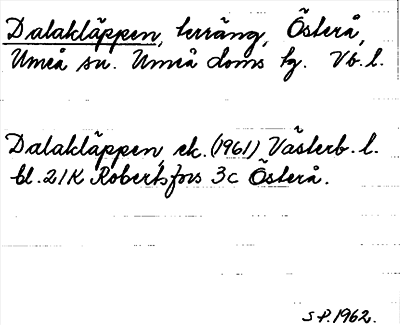 Dalakläppen, terräng, Österå,
Umeå sn. Umeå doms tg. Vb. l.
Dalakläppen, ek. (1961) Västerb. l.
bl. 21K Robertsfors 3c Österå.
S P. 1962.